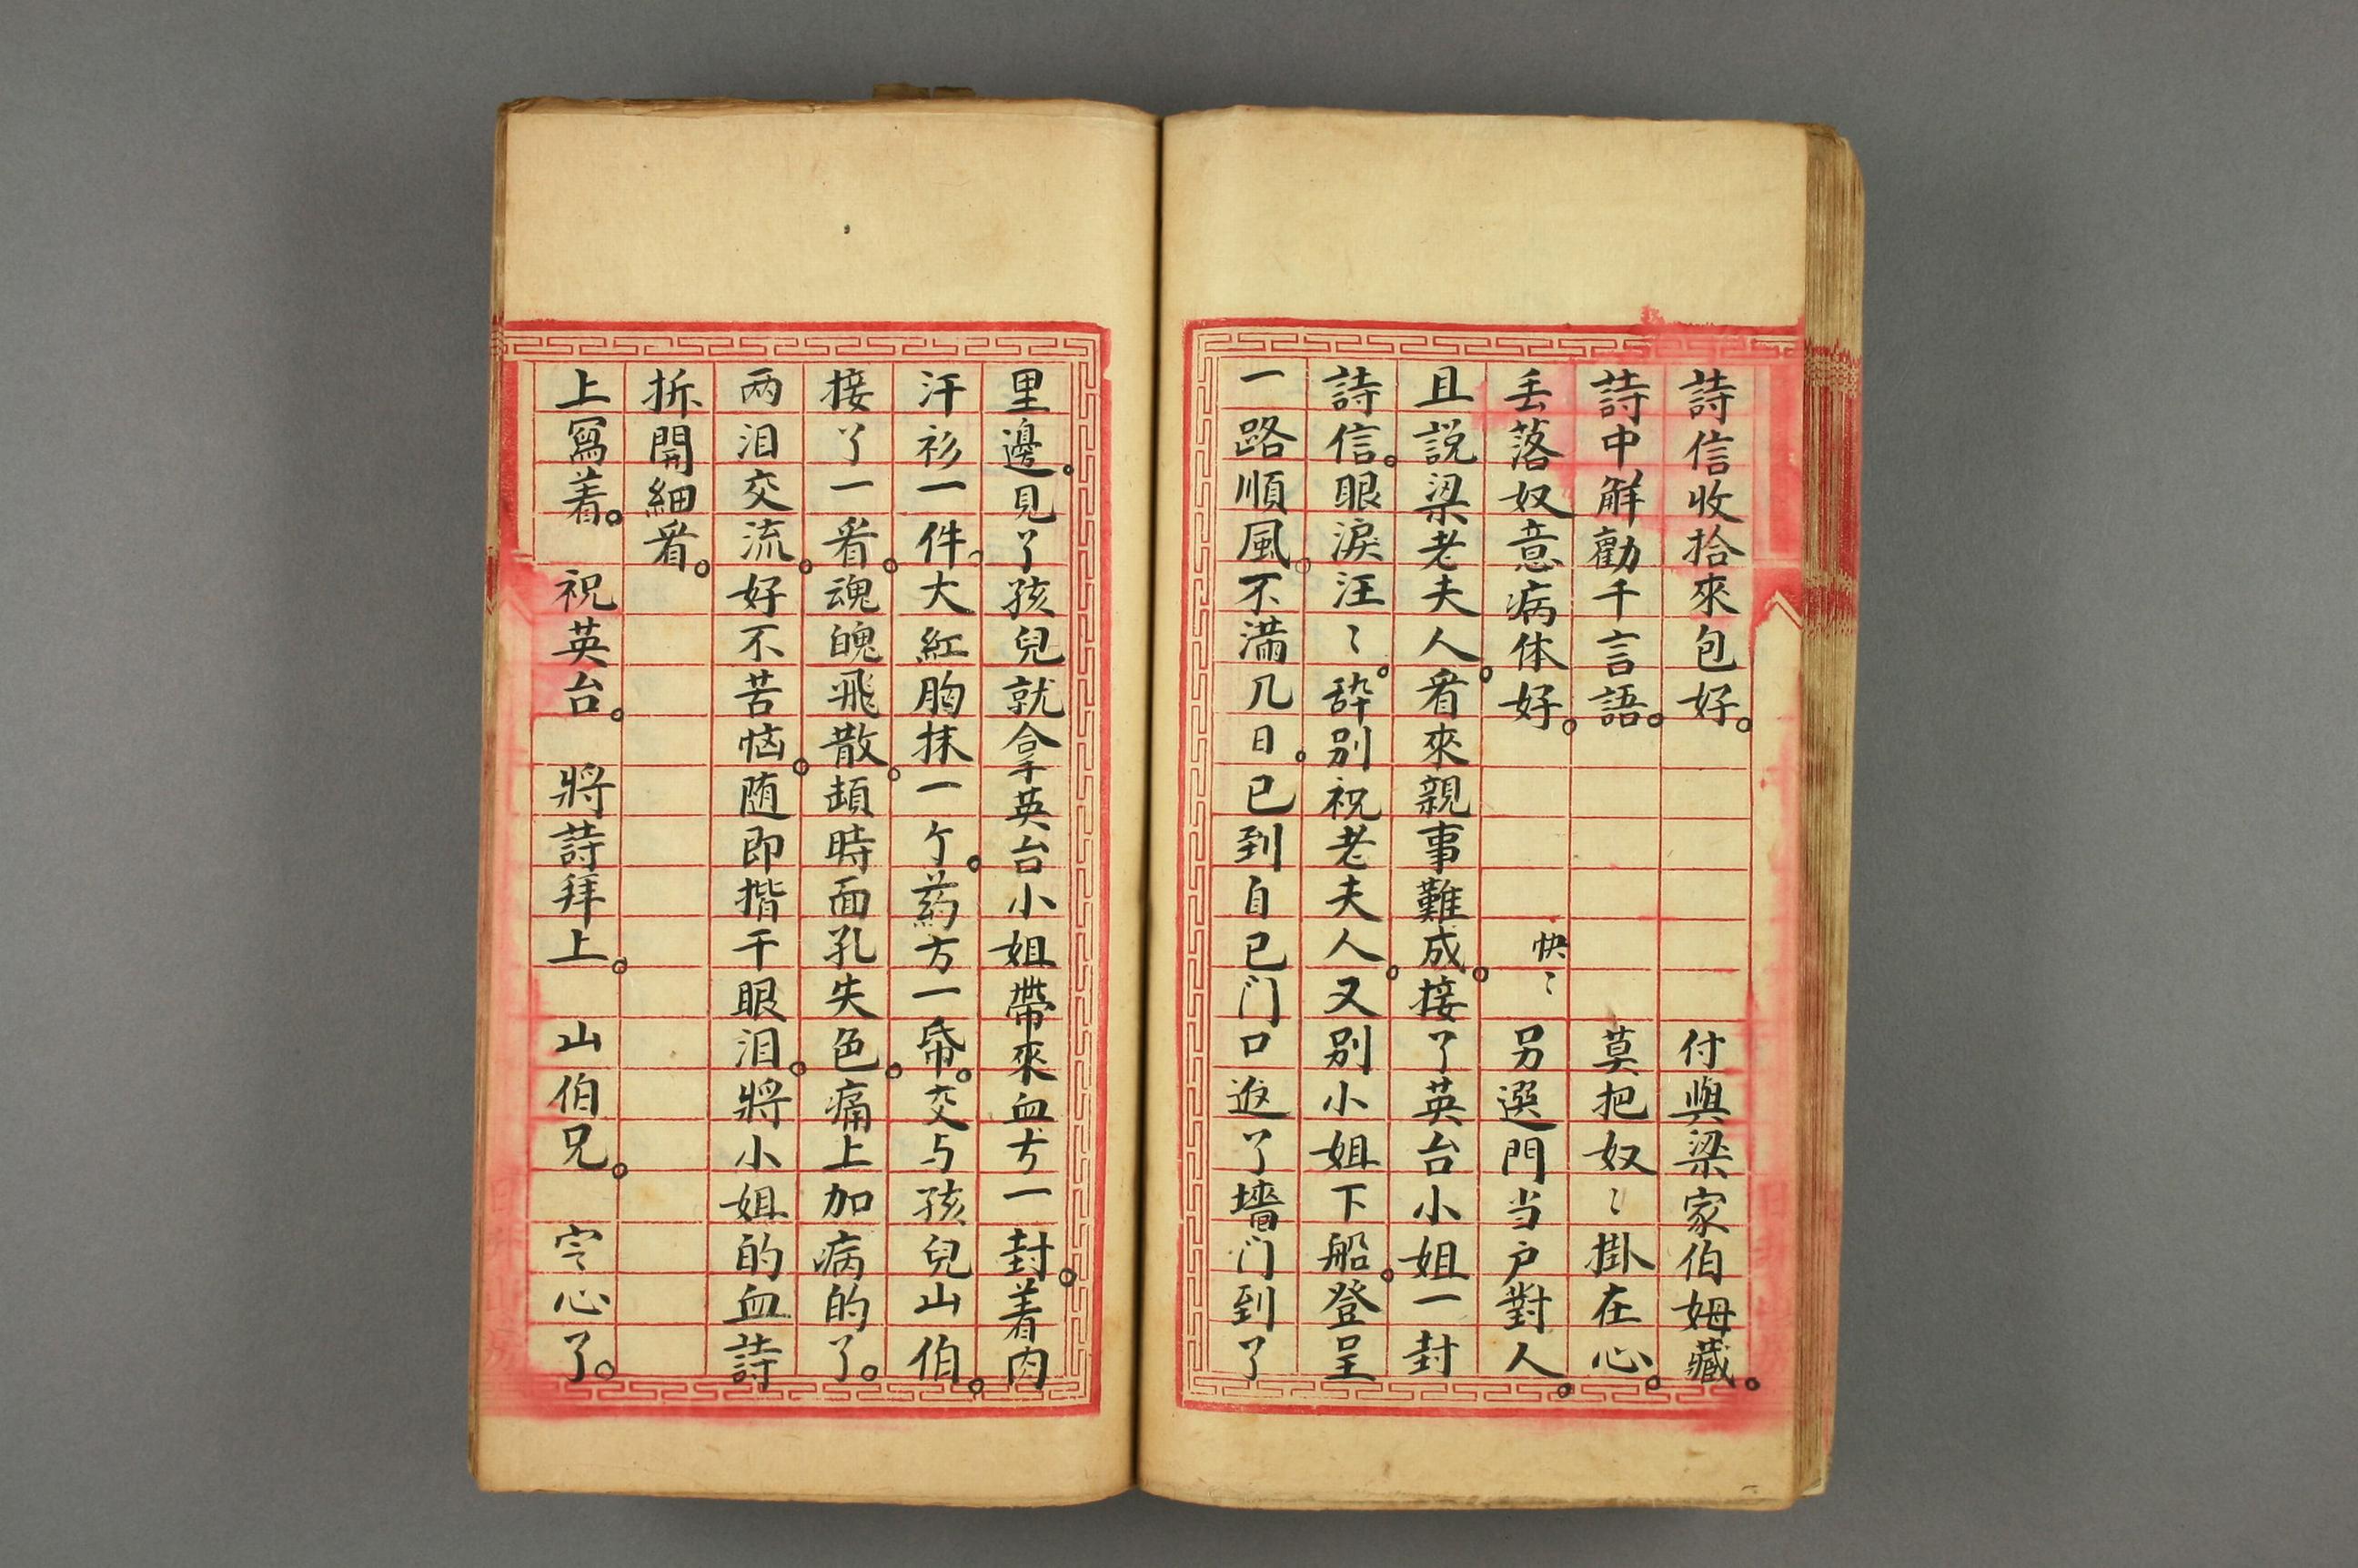 詩信收拾來包好。付與梁家伯姆藏。
詩中解勸千言語。莫把奴〻掛在心。
丢落奴意病体好。快〻另選門当户對人。
且説梁老夫人。看來親事難成。接了英台小姐一封
詩信。眼淚汪〻。辞别祝老夫人。又别小姐下船。登呈
一路順風。不滿几日。已到自已门口返了墻门到了
里邊。見了孩兒就拿英台小姐帶來血书一封。着肉
汗衫一件。大紅胸抹一个。葯方一帋。交与孩兒山伯。
接了一看。魂魄飛散。頡時面孔失色。痛上加病的了。
两泪交流。好不苦恼。随即揩干眼泪。將小姐的血詩
拆開細看。
上寫着。祝英台。將詩拜上。山伯兄。宁心了。